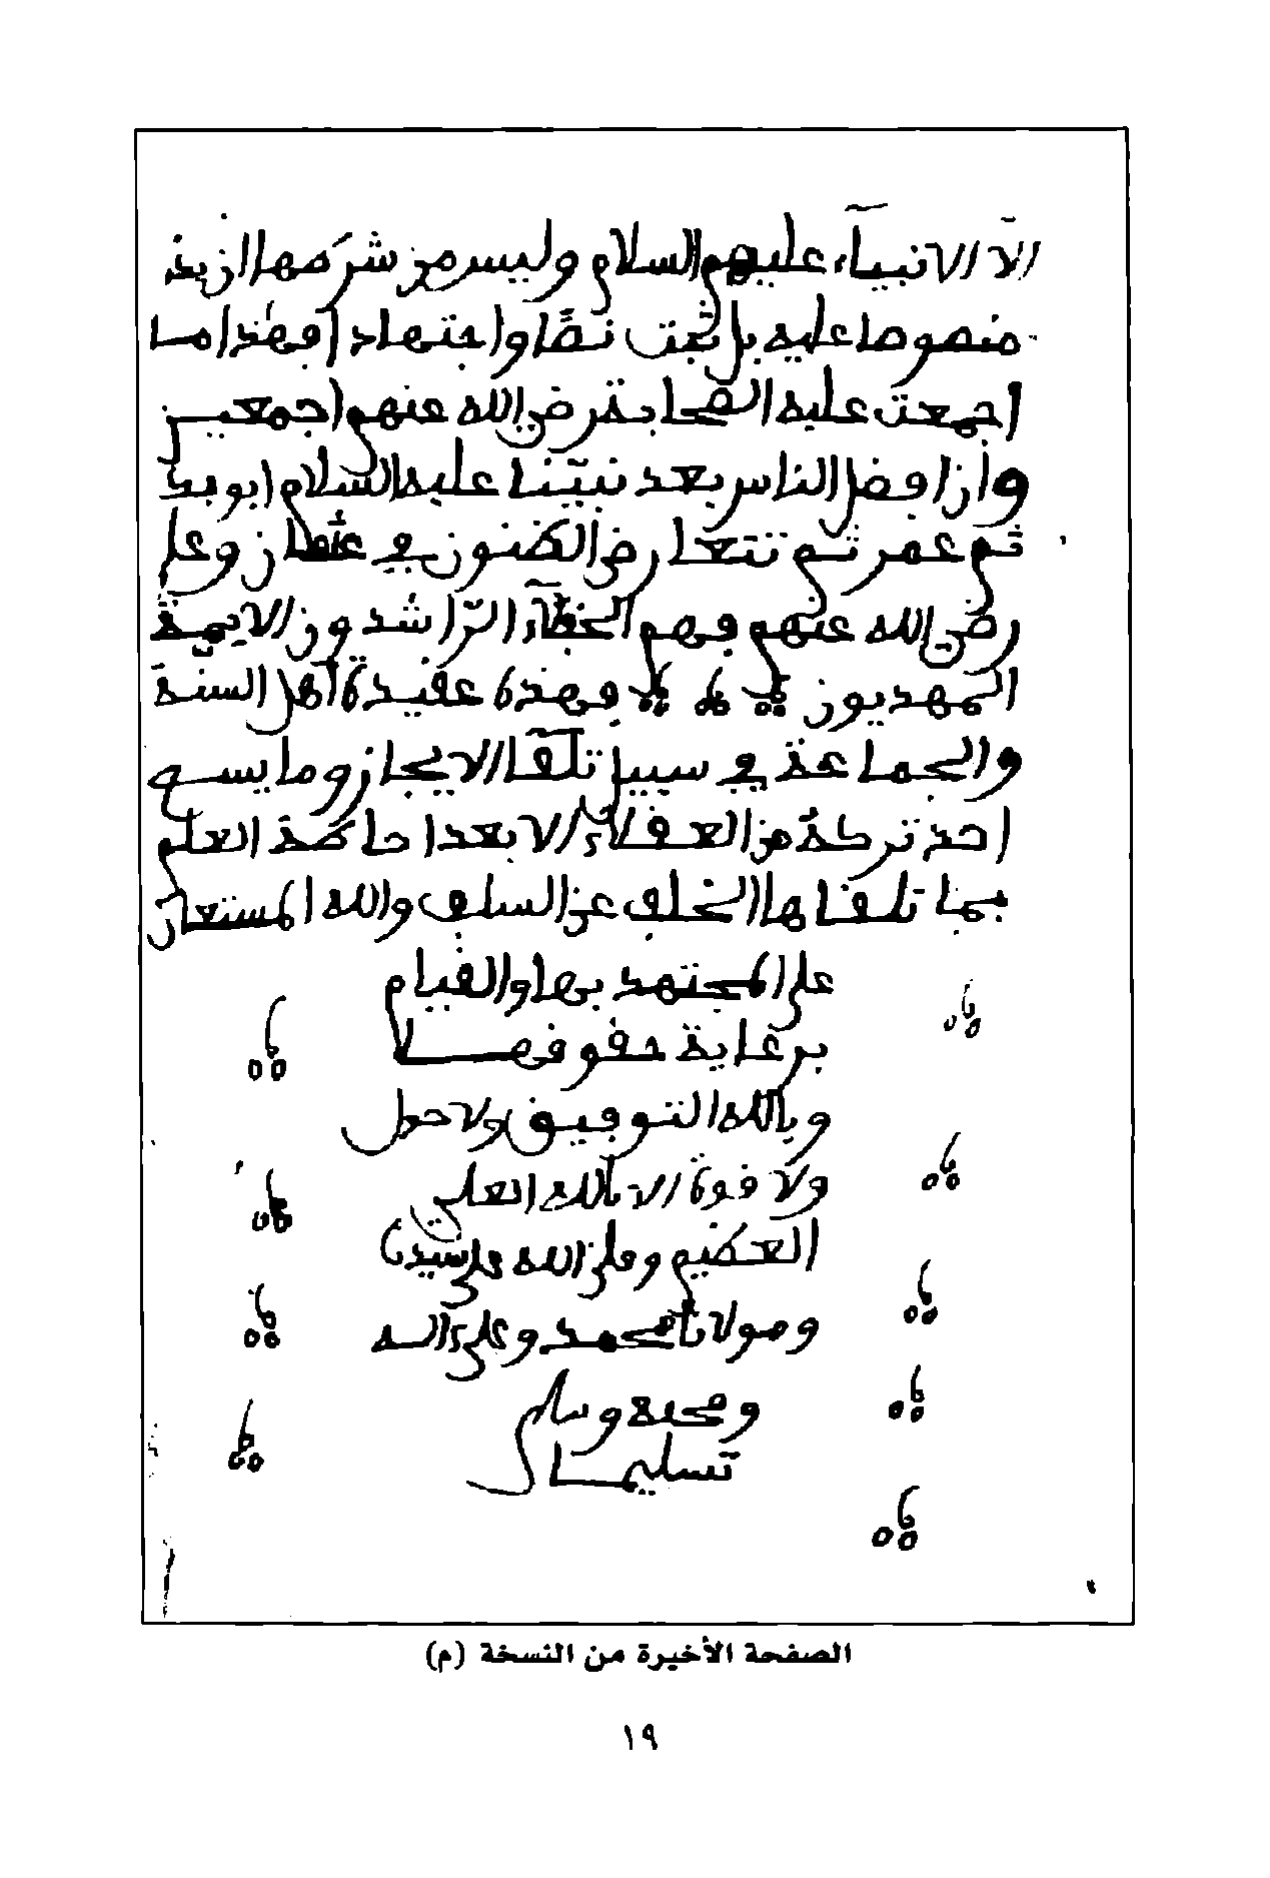 إلا الانبياء عليهم السلام وليس من شرطها ان يكون
منصوصا عليه بل تثبت نصًّا واجتهادا فهذا ما
اجمعت عليه الصحابة رضي الله عنهم اجمعين
وأن افضل الناس بعد نبيّنا عليه السلام ابو بكر
ثم عمر ثم تتعارض الظنون في عثمان وعلي
رضي الله عنهم فهم الخلفآء الرّاشدون الايمة
المهديون فهذه عقيدة أهل السنة
والجماعة في سبيل تلقّا الايجاز وما يسع
احد تركه من العقلاء الا بعد احاطة العلم
بما تلقاها الخلف عن السلف والله المستعان
على المجتهد بها والقيام
برعاية حقوقها
وبالله التوفيق ولا حول
ولا قوة الا بالله العلي
العظيم وصلى الله على سيدنا
ومولانا محمد وعلى ءاله
وصحبه وسلم
تسليما
الصفحة الأخيرة من النسخة (م)
١٩